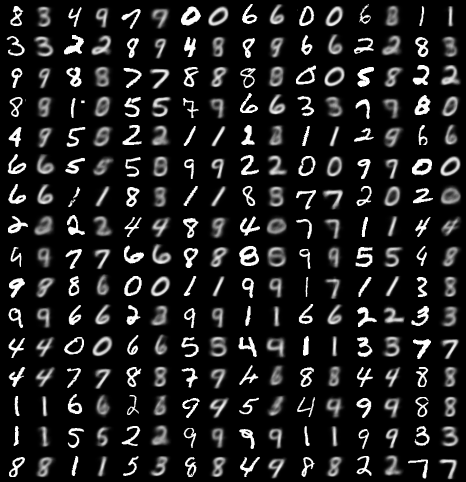 8 3 4 9 7 9 0 0 6 6 0 0 6 8 1 1
3 3 2 2 8 9 4 8 8 9 6 6 2 2 8 3
9 9 8 8 7 7 8 8 8 8 0 0 5 8 2 2
8 8 1 0 5 5 7 9 6 6 3 3 7 9 8 0
4 9 5 5 2 2 1 1 2 8 1 1 2 9 6 6
6 6 5 5 5 8 9 9 2 2 0 0 9 9 0 0
6 6 1 1 8 3 1 1 8 3 7 7 2 0 2 0
2 2 2 2 4 4 8 9 4 0 7 7 1 1 4 4
9 9 7 7 6 6 8 8 8 5 9 9 5 5 4 8
9 8 8 6 0 0 1 1 9 9 1 7 1 1 3 8
9 9 6 6 2 2 9 9 1 1 6 6 2 2 3 3
4 4 0 0 6 6 5 3 4 9 1 1 3 3 7 7
4 4 7 7 8 8 7 9 4 6 8 8 4 4 8 8
1 1 6 6 2 6 9 4 5 5 4 9 9 9 8 8
1 1 5 5 2 2 9 9 9 9 1 1 9 9 3 3
8 8 1 1 5 3 8 8 4 9 8 8 2 2 7 7